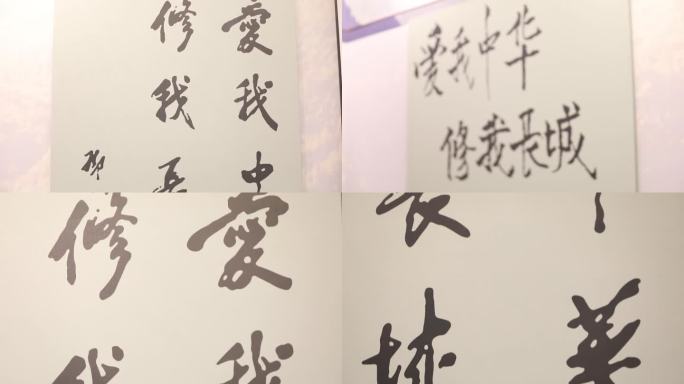 愛我中
修我長
愛我中华
修我長城
愛我
修我
華
長城